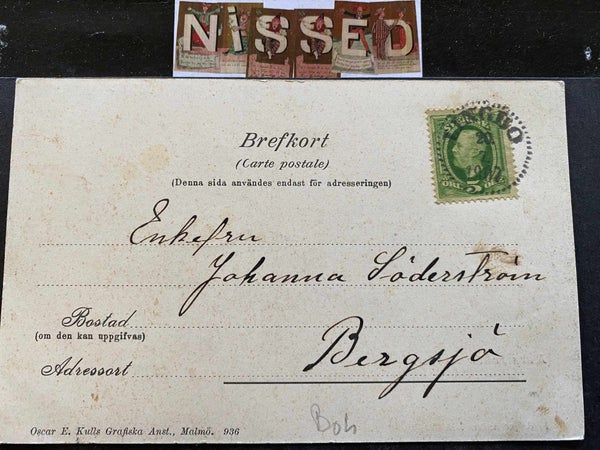 NiSSED
Brefkort
(Carte postale)
(Denna sida användes endast för adresseringen)
Enkefru
Johanna Söderström
Bostad
(om den kan uppgifvas)
Bergsjö
Adressort
Oscar E. Kulls Grafiska Anst., Malmö. 936
Boh
ÖRE 5